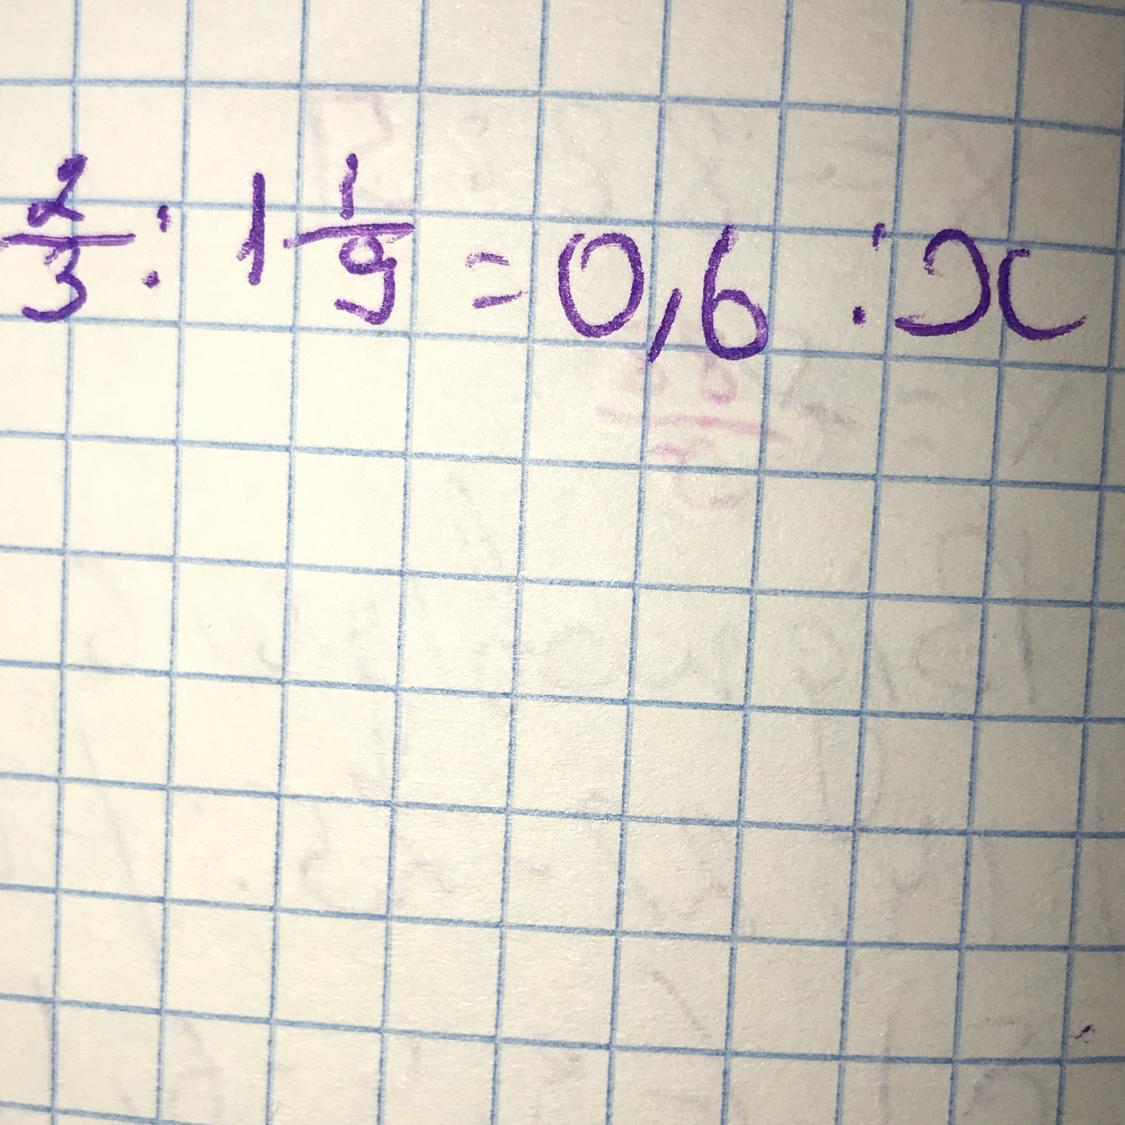 2/3 : 1 1/9 = 0,6 : x